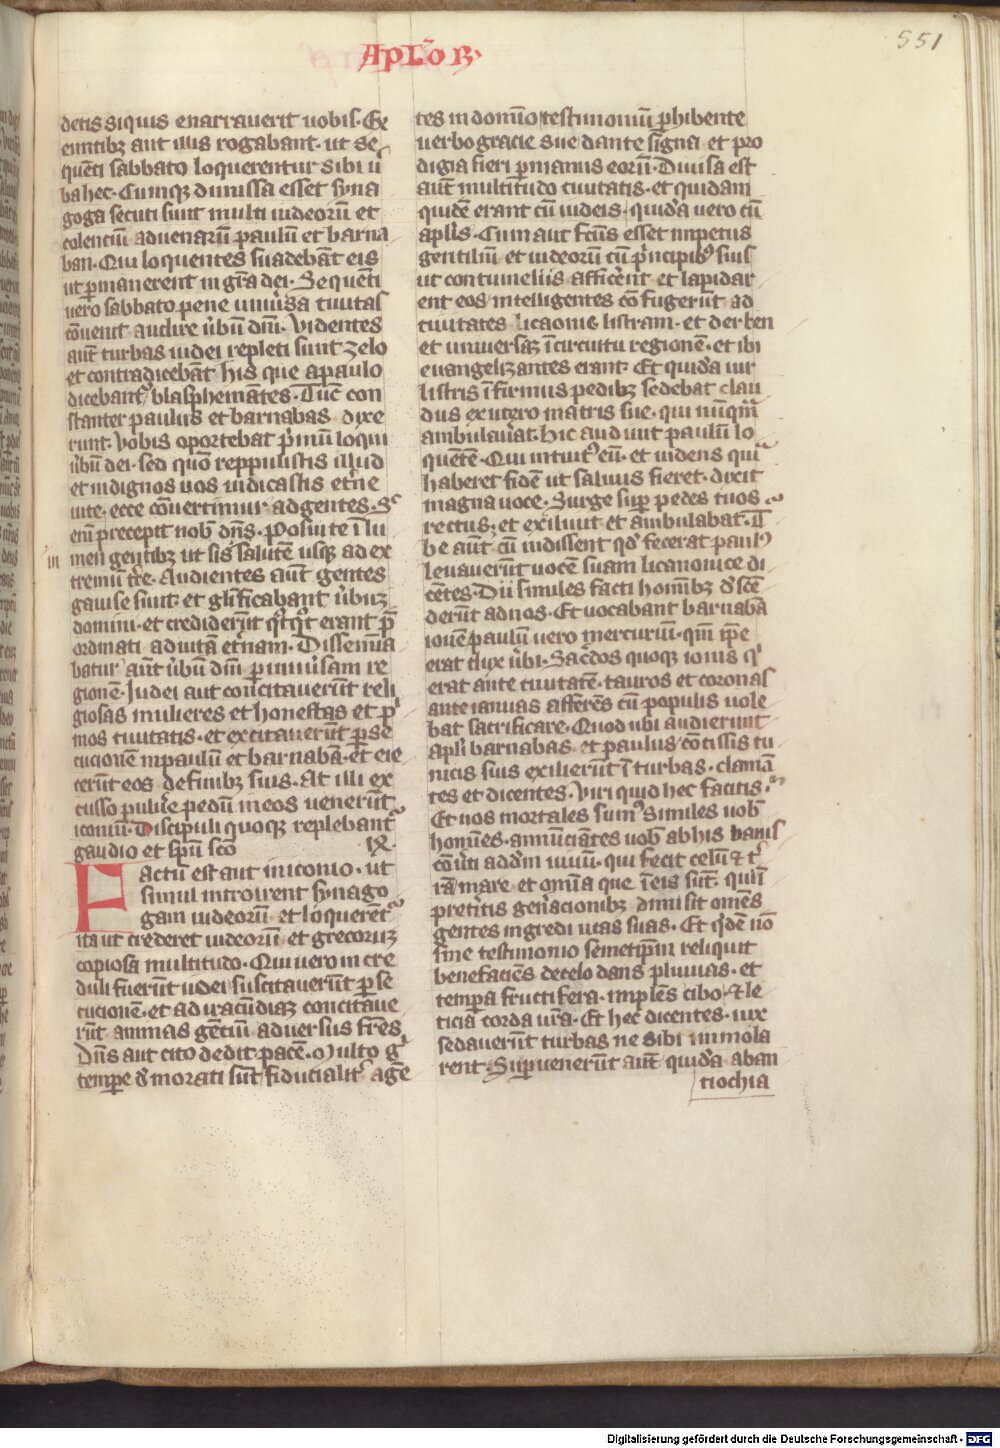 551
Aplōꝝ
detis si quis enarraverit uobis. Ex
euntibꝫ aut illis rogabant. ut se
quēti sabbato loquerentur sibi ū
ba hec. Cumqꝫ dimissa esset syna
goga secuti sunt multi iudeorū et
colenciū aduenarū paulū et barna
ban. Qui loquentes suadebāt eis
ut ꝑmanerent in grā dei. Sequēti
uero sabbato pene uniūsa ciuitas
cōuenit audire ūbū dnī. Videntes
aūt turbas iudei repleti sunt zelo
et contradicebāt his que a paulo
dicebant᷑ blasphemātes. Tūc con
stanter paulus et barnabas dixe
runt. Vobis oportebat pⁱmū loqui
ūbū dei. sed quō reppulistis illud
et indignos uos iudicastis etne
uite. ecce cōuertimur ad gentes. Sͨ
eni precepit nob̄ dn̄s. Posui te ī lu
in men gentibꝫ ut sis salutē usqꝫ ad ex
tremū tre. Audientes aūt gentes
gauise sunt. et glīficabant ūbum
domini. et crediderūt qͦtqͦt erant p̄
ordinati ad uitā etnam. Dissemīa
batur aūt ūbū dnī ꝑ uniūsam re
gionē. Iudei aut concitauerūt reli
giosas mulieres et honestas et pⁱ
mos ciuitatis. et excitauerūt ꝑse
cucionē in paulū et barnabā. et eie
cerūt eos de finibꝫ suis. At illi ex
cusso puluere pedū in eos uenerūt
iconiū. Discipuli quoqꝫ replebant᷑
gaudio et spū scō IX.
Factū est aut in iconio. ut
simul introirent synago
gam iudeorū et loquerēt᷑
ita ut crederet iudeorū et grecorum
copiosa multitudo. Qui uero incre
duli fuerūt iudei suscitauerūt ꝑse
cucionē. et ad iracūdiaꝫ concitaue
rūt animas gēciū aduersus frēs.
Dn̄s aut cito dedit pacē. Multo gͦ
tempe ꝺmorati sūt fiducialit᷑ agē
tes in domīo testimoniū ꝑhibente
uerbo gracie sue dante signa et pro
digia fieri ꝑ manus eorū. Diuisa est
aūt multitudo ciuitatis. et quidam
quidē erant cū iudeis. quidā uero cū
aplīs. Cum aut fcūs esset impetus
gentiliū et iudeorū cū pⁱncipibꝰ suis
ut contumeliis afficerēt et lapidar
ent eos intelligentes cōfugerūt ad
ciuitates licaonie listram. et derben
et uniuersaꝫ ī circuitu regionē. et ibi
euangelizantes erant. Et quidā uir
listris īfirmus pedibꝫ sedebat clau
dus ex utero matris sue. qui nūqͣm
ambulauat. hic audiuit paulū lo
quētē. Qui intuitꝰ eū. et uidens quī
haberet fidē ut saluus fieret. dixit
magna uoce. Surge suꝑ pedes tuos
rectus. et exiliuit et ambulabat. T
be aūt cū uidissent qd̄ fecerat paulꝰ
leuauerūt uocē suam licaonice di
cētes. Dii similes facti homībꝫ ꝺscē
derūt ad nos. Et uocabant barnabā
iouē paulū uero mercuriū. qm̄ ip̄e
erat dux ūbi. Sacdos quoqꝫ iouis qͥ
erat ante ciuitatē. tauros et coronas
ante ianuas afferēs cū populis uole
bat sacrificare. Quod ubi audierunt
aplī barnabas et paulus cōcissis tu
nicis suis exilierūt ī turbas. clamā
tes et dicentes. Viri quid hec facitis.
Et nos mortales sumꝰ similes uob̄
homīes. annūciātes uob̄ ab his uanis
cōūti ad dm̄ uiuū. qui fecit celū ⁊ t᷑
rā mare et omīa que ī eis sūt. quī
pretitis genacionibꝫ dimisit omēs
gentes ingredi uias suas. Et qͥdē nō
sine testimonio semetipm̄ reliquit
benefaciēs de celo dans pluuias. et
tempa fructifera. implēs cibo. ⁊ le
ticia corda ura. Et hec dicentes. uix
sedauerūt turbas ne sibi immola
rent. Suꝑuenerūt aūt quidā ab an
tiochia
Digitalisierung gefördert durch die Deutsche Forschungsgemeinschaft - DFG